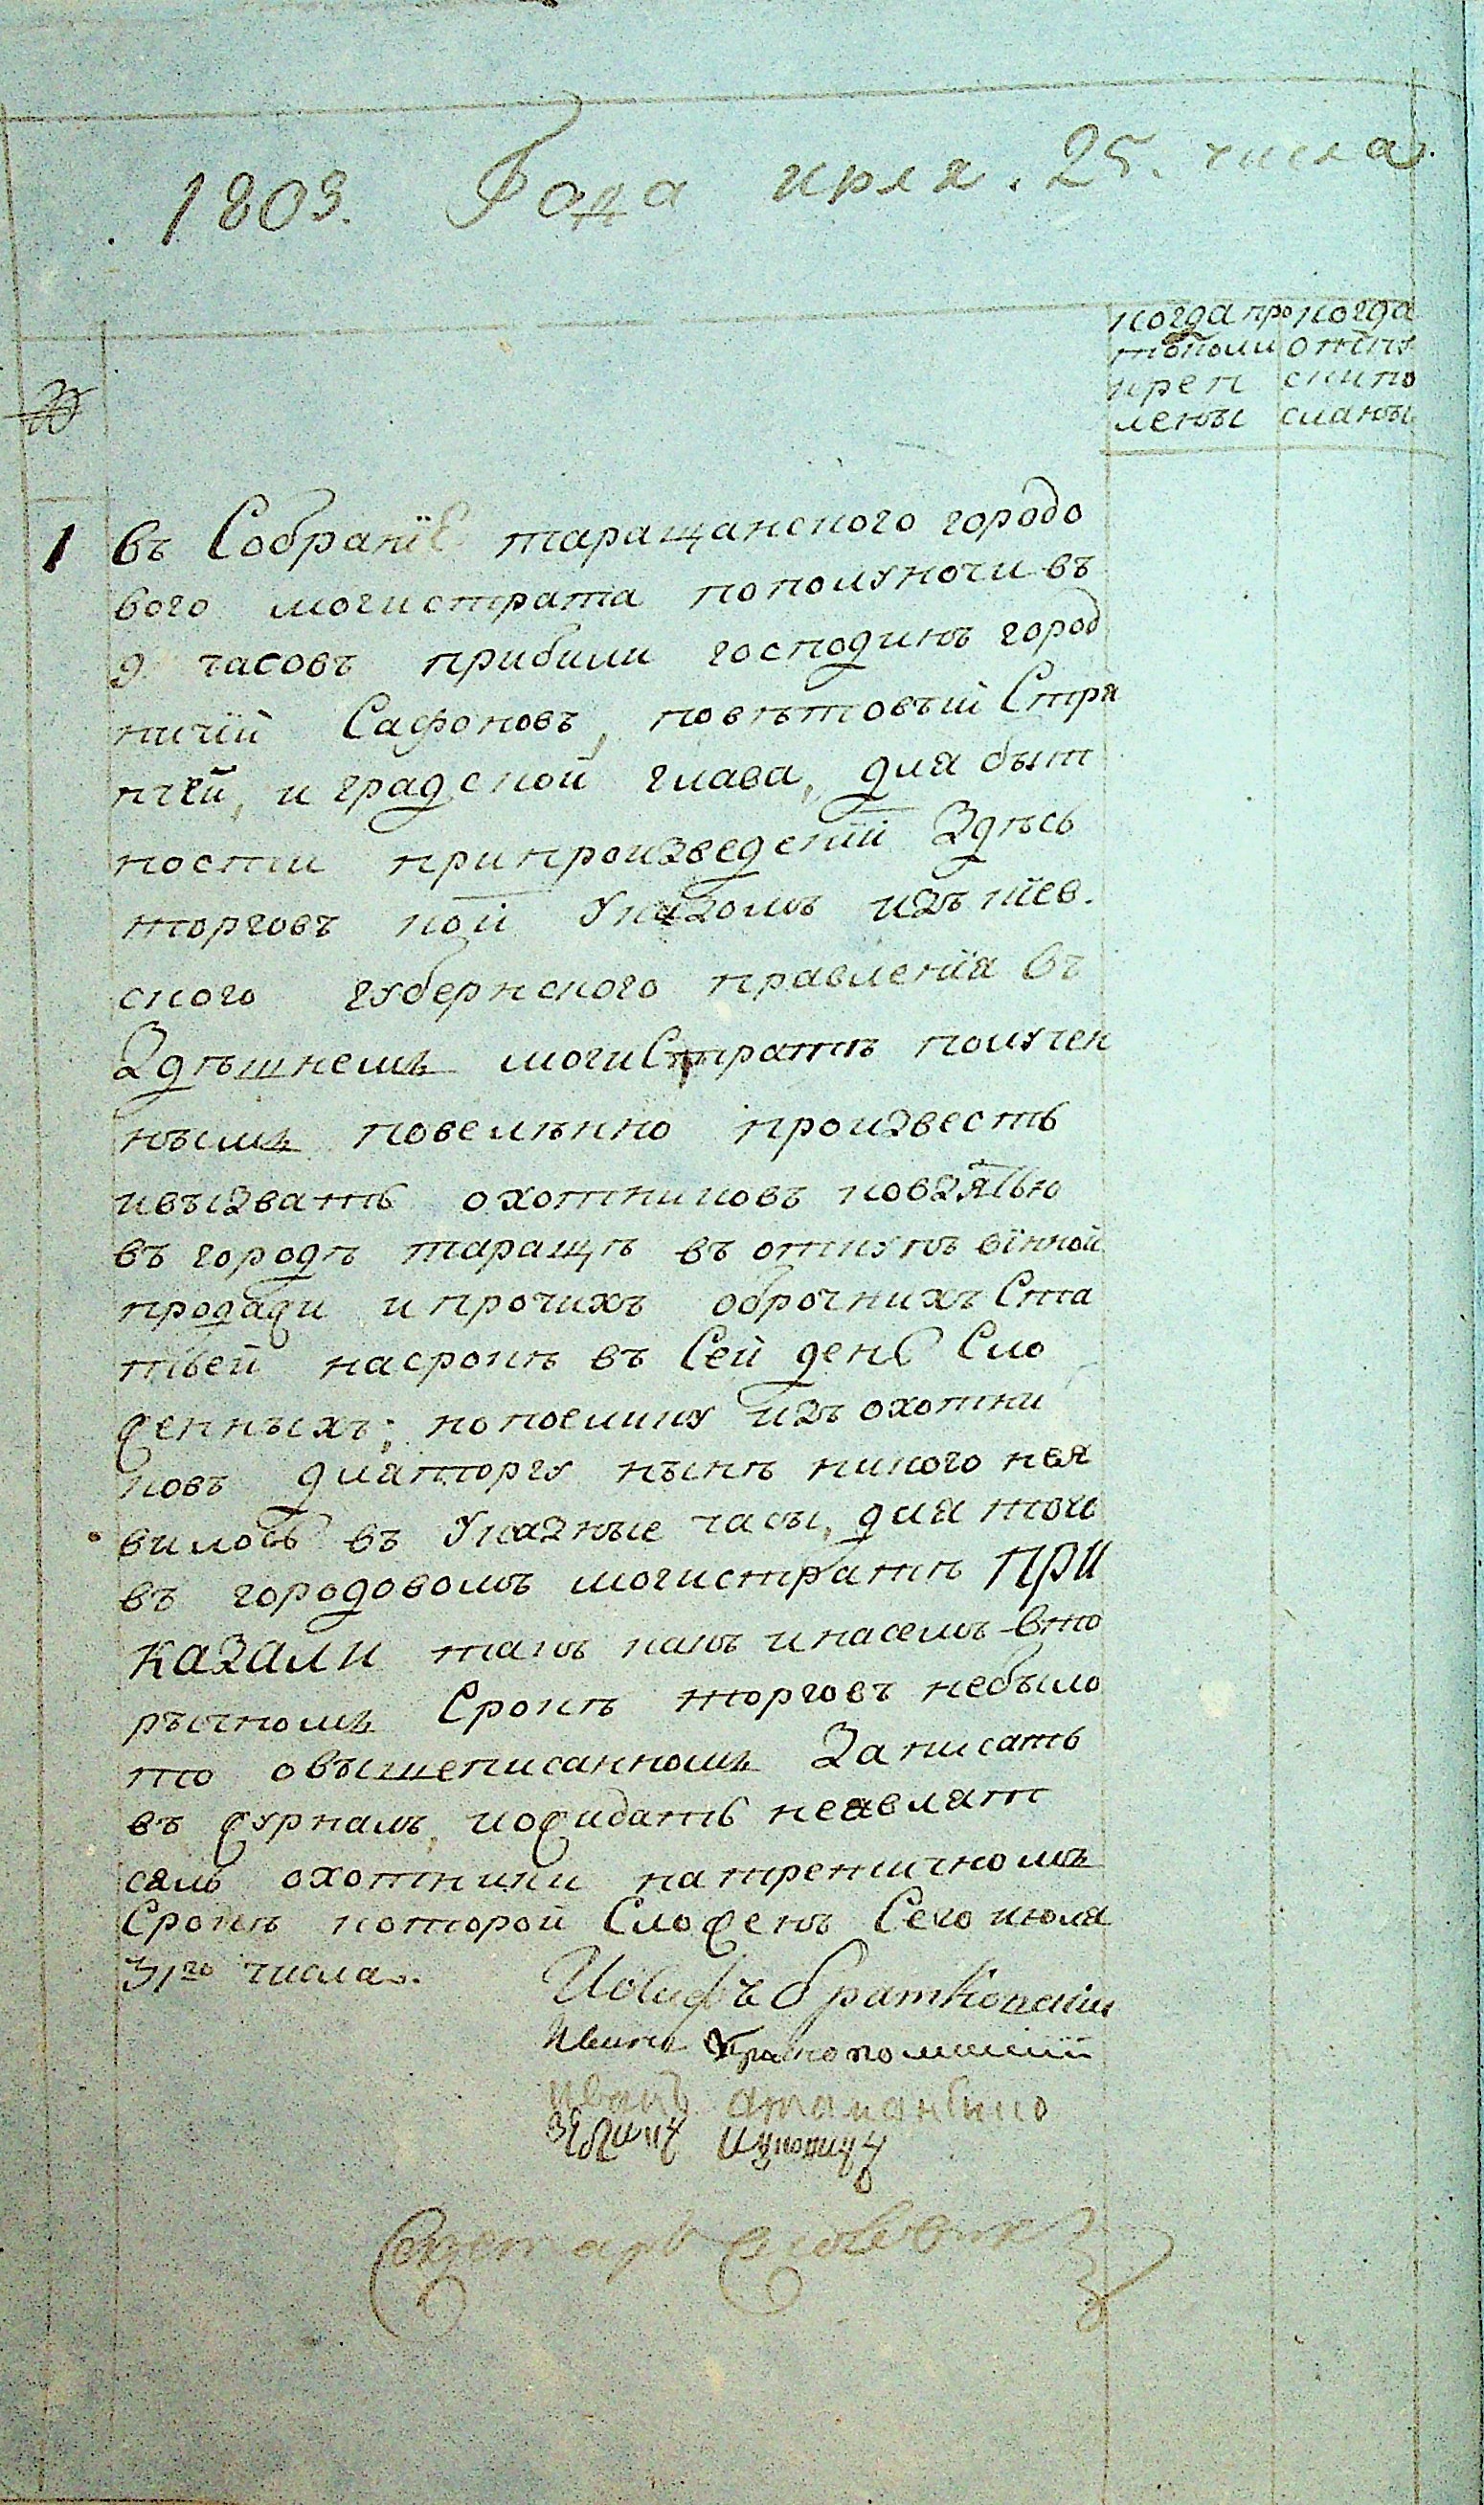 1803. Года июля. 25. числа.
когда про когда
токоли отпу
креп скипо
лены сланы
№
1 въ Собранїе таращанского городо
вого могистрата пополуночи въ
9. часовъ прибили господинъ город
ничїй Сафоновъ, повѣтовый Стря
пчей, и градской глава, для быт
ности припроизведенїи Здѣсь
торговъ кои Указомъ изъ кіев.
ского губернского правленїя въ
Здѣшнемъ могиСтратѣ получен
нымъ повелѣнно произвесть
ивызвать охотниковъ ковзятью
въ городѣ таращѣ въ откупъ вїнной
продажи ипрочихъ оброчнихъ Ста
тьей насрокѣ въ Сей день Сло
женныхъ; нопоелику изъ охотни
ковъ дляторгу нынѣ никого нея
вилось въ Указные часы, для того
въ городовомъ могистратѣ При
казали такъ какъ инасемъ вто
рычномъ Срокѣ торговъ небыло
то овышеписанномъ Записать
въ журналъ, иожидать неявлят
сяль охотники натретичномъ
Срокѣ которой Сложенъ Сего июля
31го числа.
Иосифъ братковскій
Иванъ
Иванъ атаманенко
Секретарь